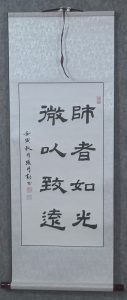 師者如光
微以致遠